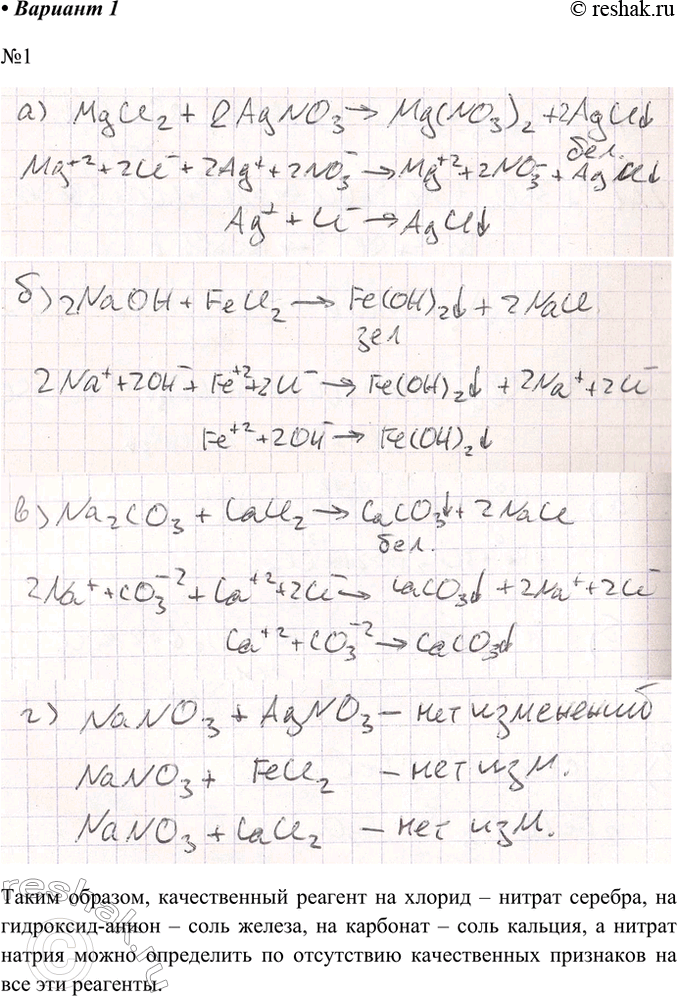 • Вариант 1 © reshak.ru
№1
а) MgCl₂ + 2AgNO₃ → Mg(NO₃)₂ + 2AgCl↓
бел.
Mg⁺² + 2Cl⁻ + 2Ag⁺ + 2NO₃⁻ → Mg⁺² + 2NO₃⁻ + AgCl↓
Ag⁺ + Cl⁻ → AgCl↓
б) 2NaOH + FeCl₂ → Fe(OH)₂↓ + 2NaCl
зел
2Na⁺ + 2OH⁻ + Fe⁺² + 2Cl⁻ → Fe(OH)₂↓ + 2Na⁺ + 2Cl⁻
Fe⁺² + 2OH⁻ → Fe(OH)₂↓
в) Na₂CO₃ + CaCl₂ → CaCO₃↓ + 2NaCl
бел.
2Na⁺ + CO₃⁻² + Ca⁺² + 2Cl⁻ → CaCO₃↓ + 2Na⁺ + 2Cl⁻
Ca⁺² + CO₃⁻² → CaCO₃↓
г) NaNO₃ + AgNO₃ – нет изменений
NaNO₃ + FeCl₂ – нет изм.
NaNO₃ + CaCl₂ – нет изм.
Таким образом, качественный реагент на хлорид – нитрат серебра, на
гидроксид-анион – соль железа, на карбонат – соль кальция, а нитрат
натрия можно определить по отсутствию качественных признаков на
все эти реагенты.